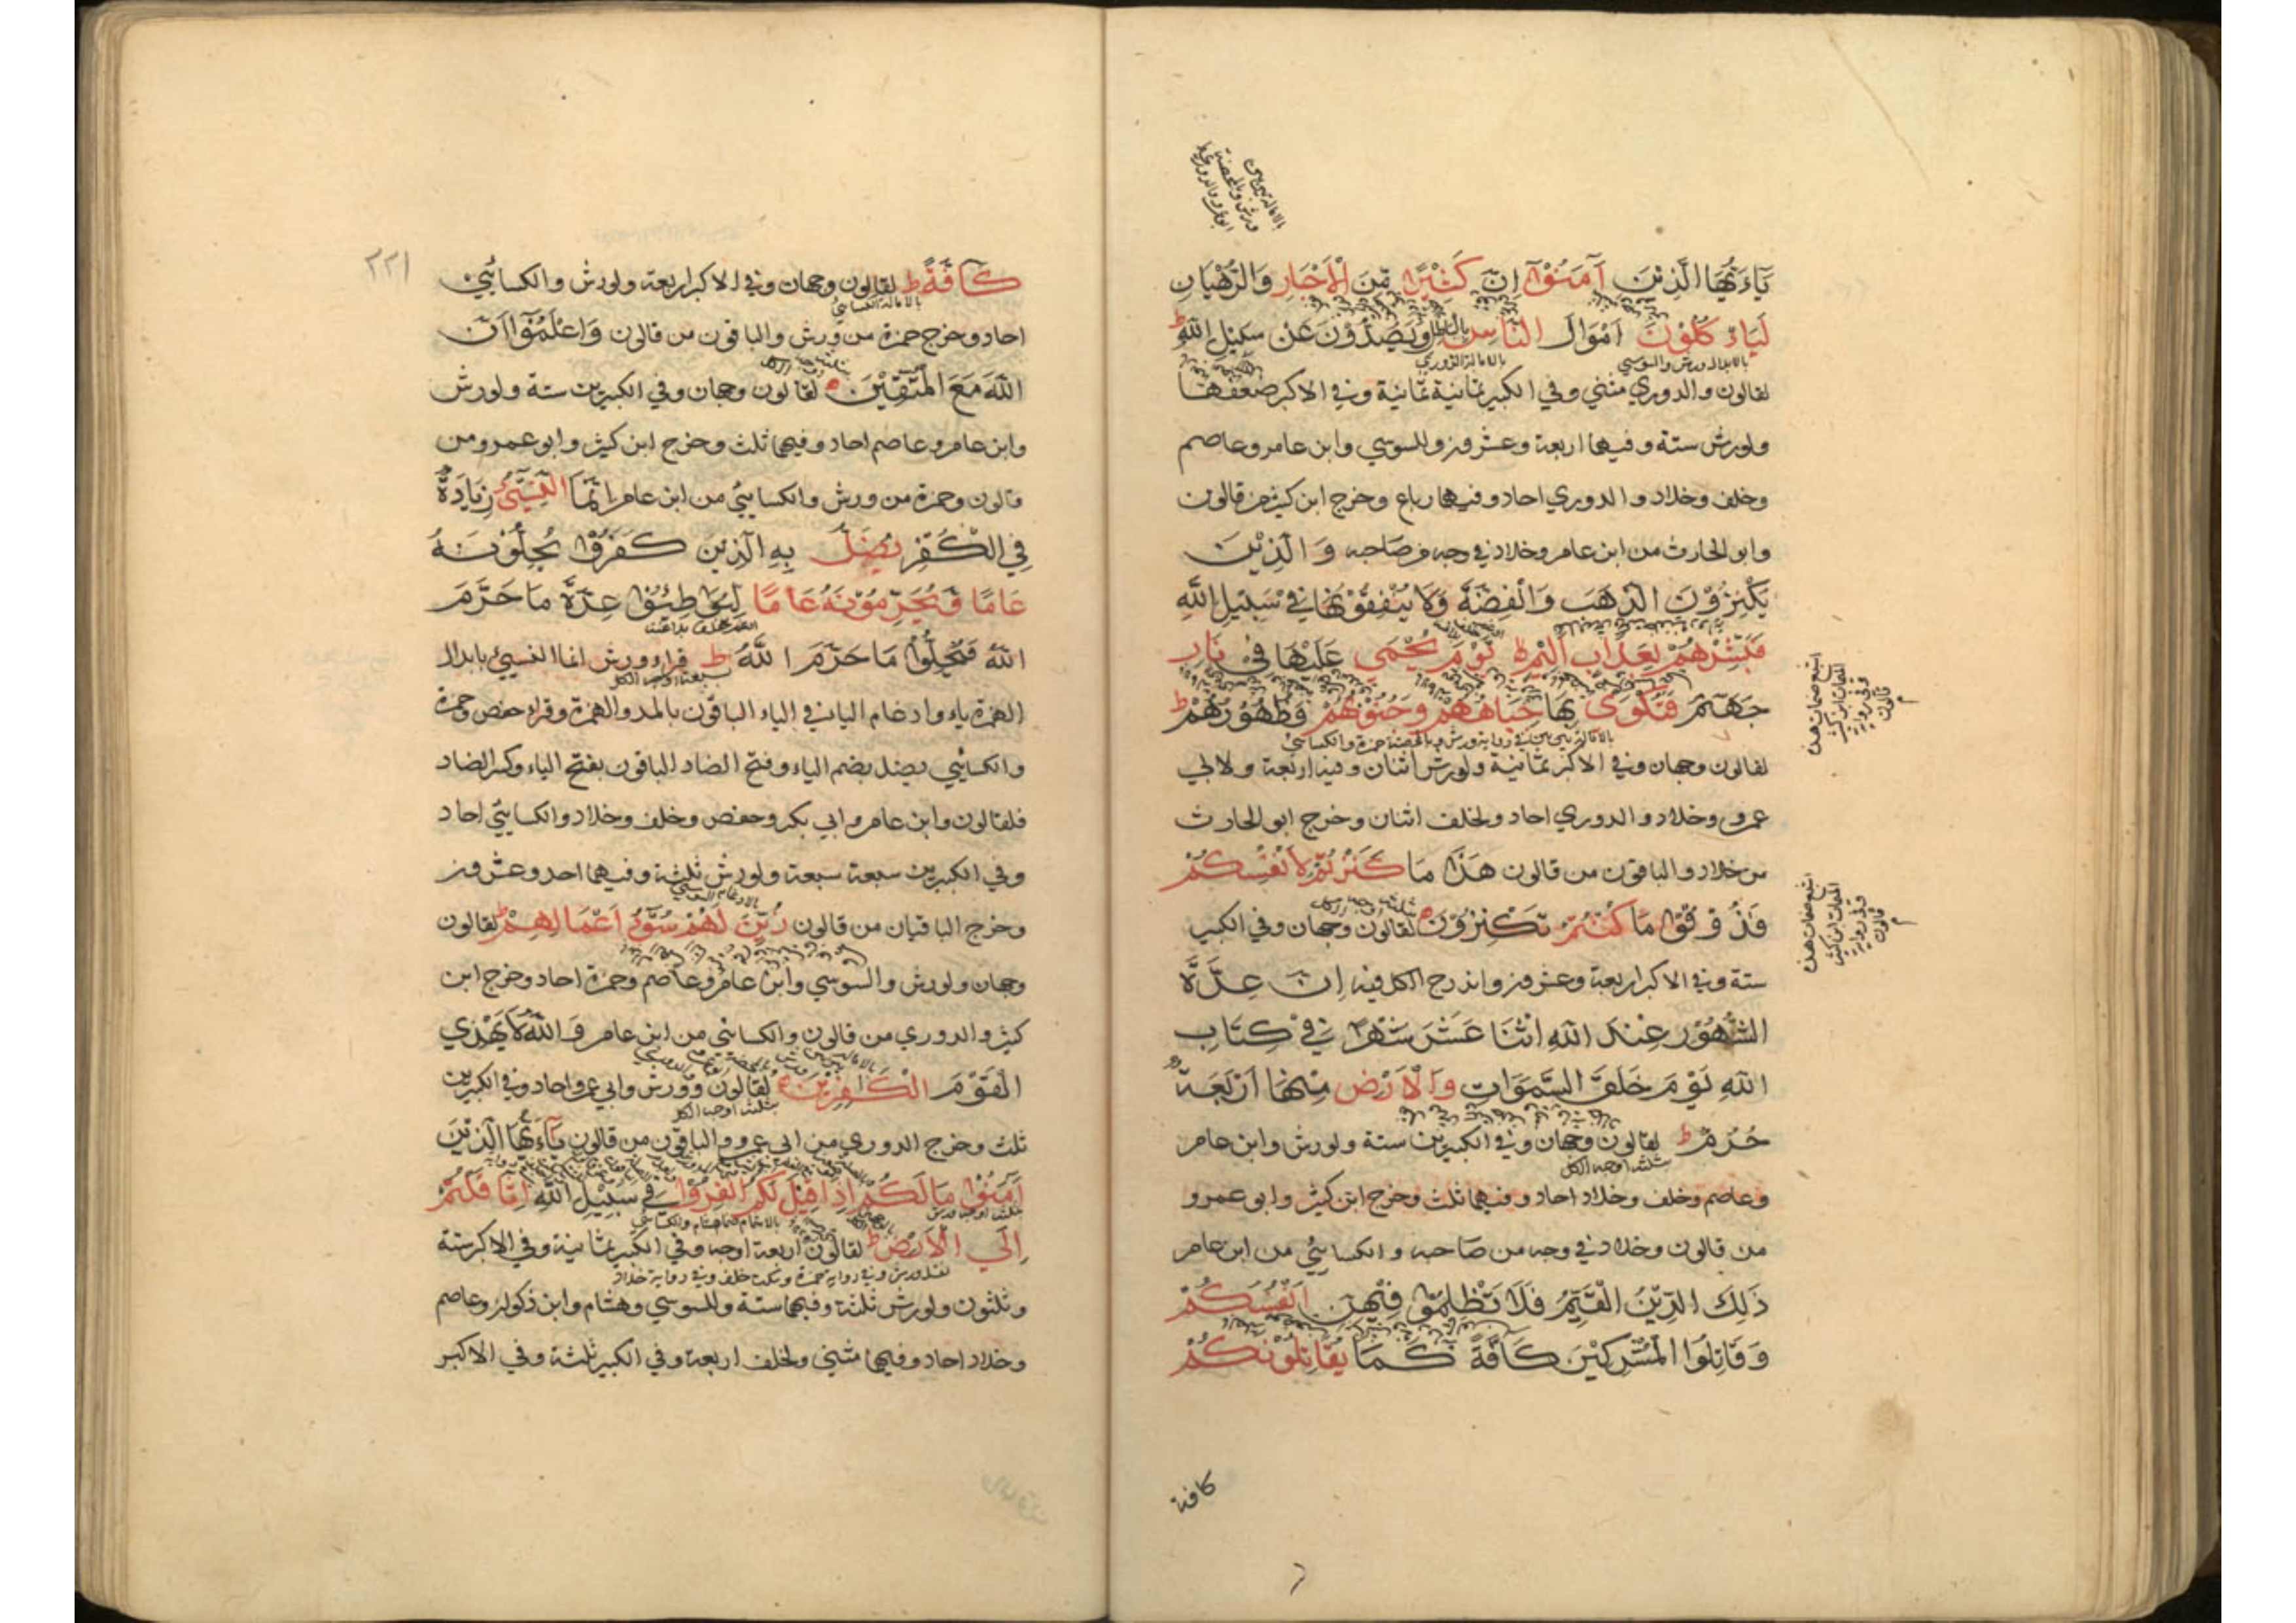 يَآءَيُّهَا الَّذِيْنَ آمَنُوْآ اِنَّ كَثِيْرًا مِّنَ الْاَحْبَارِ وَالرُّهْبَانِ
لَيَاءْ كُلُوْنَ اَمْوَالَ النَّاسِ بالباطل وَيَصُدُّوْنَ عَنْ سَبِيْلِ اللّٰهِ ط
بالابدال ورش والسوسي بالامالة الدوري
لقالون والدوري مثني وفي الكبير ثمانية ثمانية وفي الاكبر ضعفها
ولورش ستة وفيها اربعة وعشرون وللسوسي وابن عامر وعاصم
وخلف وخلاد والدوري احاد وفيها رباع وخرج ابن كثير من قالون
وابو الحارث من ابن عامر وخلاد في وجه من صاحبه وَ الَّذِيْنَ
يَكْنِزُوْنَ الذَّهَبَ وَالْفِضَّةَ وَلَا يُنْفِقُوْنَهَا فِيْ سَبِيْلِ اللّٰهِ
فَبَشِّرْهُمْ بِعَذَابٍ اَلِيْمٍ ط يَوْمَ يُحْمٰى عَلَيْهَا فِيْ نَارِ
جَهَنَّمَ فَتُكْوٰى بِهَا جِبَاهُهُمْ وَجُنُوْبُهُمْ وَظُهُوْرُهُمْ ط
لقالون وجهان وفي الاكبر ثمانية ولورش اثنان وفيه اربعة ولابي
عمرو وخلاد والدوري احاد ولخلف اثنان وخرج ابو الحارث
من خلاد والباقون من قالون هَذَا مَا كَنَزْتُمْ لِاَنْفُسِكُمْ
فَذُوْقُوْا مَا كُنْتُمْ تَكْنِزُوْنَ لقالون وجهان وفي الكبير
ستة وفي الاكبر اربعة وعشرون واندرج الكل فيه اِنَّ عِدَّةَ
الشُّهُوْرِ عِنْدَ اللّٰهِ اثْنَا عَشَرَ شَهْرًا فِيْ كِتَابِ
اللّٰهِ يَوْمَ خَلَقَ السَّمَوَاتِ وَالْاَرْضَ مِنْهَا اَرْبَعَةٌ
حُرُمٌ ط لقالون وجهان وفي الكبيرين ستة ولورش وابن عامر
ثلثة اوجه الكل
وعاصم وخلف وخلاد احاد وفيهما ثلث وخرج ابن كثير وابو عمرو
من قالون وخلاد في وجه من صاحبه والكسائي من ابن عامر
ذٰلِكَ الدِّيْنُ الْقَيِّمُ فَلَا تَظْلِمُوْا فِيْهِنَّ اَنْفُسَكُمْ
وَقَاتِلُوا الْمُشْرِكِيْنَ كَافَّةً كَمَا يُقَاتِلُوْنَكُمْ
كافة
٢٢١
كَآفَّةً ط لقالون وجهان وفي الاكبر اربعة ولورش والكسائي
بالامالة الكسائي
احاد وخرج حمزة من ورش والباقون من قالون وَاعْلَمُوْآ اَنَّ
اللّٰهَ مَعَ الْمُتَّقِيْنَ لقالون وجهان وفي الكبيرين ستة ولورش
وابن عامر وعاصم احاد وفيهما ثلث وخرج ابن كثير وابو عمرو من
قالون وحمزة من ورش والكسائي من ابن عامر اِنَّمَا النَّسِيْٓءُ زِيَادَةٌ
فِي الْكُفْرِ يُضَلُّ بِهِ الَّذِيْنَ كَفَرُوْا يُحِلُّوْنَهُ
عَامًا وَّيُحَرِّمُوْنَهُ عَامًا لِيُوَاطِئُوْا عِدَّةَ مَا حَرَّمَ
اللّٰهُ فَيُحِلُّوْا مَا حَرَّمَ اللّٰهُ ط قراء ورش انما النسيئ بابدال
سبعة اوجه الكل
الهمزة ياء وادغام الياء في الياء الباقون بالمد والهمزة وقراء حفص وحمزة
والكسائي يضل بضم الياء وفتح الضاد الباقون بفتح الياء وكسر الضاد
فلقالون وابن عامر وابي بكر وحفص وخلف وخلاد والكسائي احاد
وفي الكبيرين سبعة سبعة ولورش ثلثة وفيهما احد وعشرون
بالادغام السوسي
وخرج الباقيان من قالون زُيِّنَ لَهُمْ سُوْٓءُ اَعْمَالِهِمْ ط لقالون
وجهان ولورش والسوسي وابن عامر وعاصم وحمزة احاد وخرج ابن
كثير والدوري من قالون والكسائي من ابن عامر وَاللّٰهُ لَا يَهْدِي
الْقَوْمَ الْكَافِرِيْنَ لقالون وورش وابي عمرو احاد وفي الكبيرين
ثلثة اوجه الكل
ثلث وخرج الدوري من ابي عمرو والباقون من قالون يَآءَيُّهَا الَّذِيْنَ
اٰمَنُوْا مَا لَكُمْ اِذَا قِيْلَ لَكُمُ انْفِرُوْا فِيْ سَبِيْلِ اللّٰهِ اثَّاقَلْتُمْ
ثلثة اوجه ورش بالاشمام هشام والكسائي
اِلَى الْاَرْضِ ط لقالون اربعة اوجه وفي الكبير ثمانية وفي الاكبر ستة
وثلثون ولورش ثلثة وفيهما ستة وللسوسي وهشام وابن ذكوان وعاصم
وخلاد احاد وفيهما مثني ولخلف اربعة وفي الكبير ثلثة وفي الاكبر